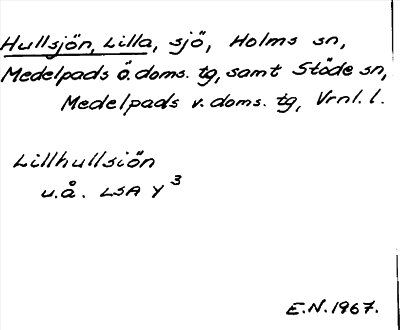 Hullsjön, Lilla, sjö, Holms sn,
Medelpads ö. doms. tg, samt Stöde sn,
Medelpads v. doms. tg, Vrnl. l.
Lillhullsiön
u.å. LSA Y 3
E.N. 1967.